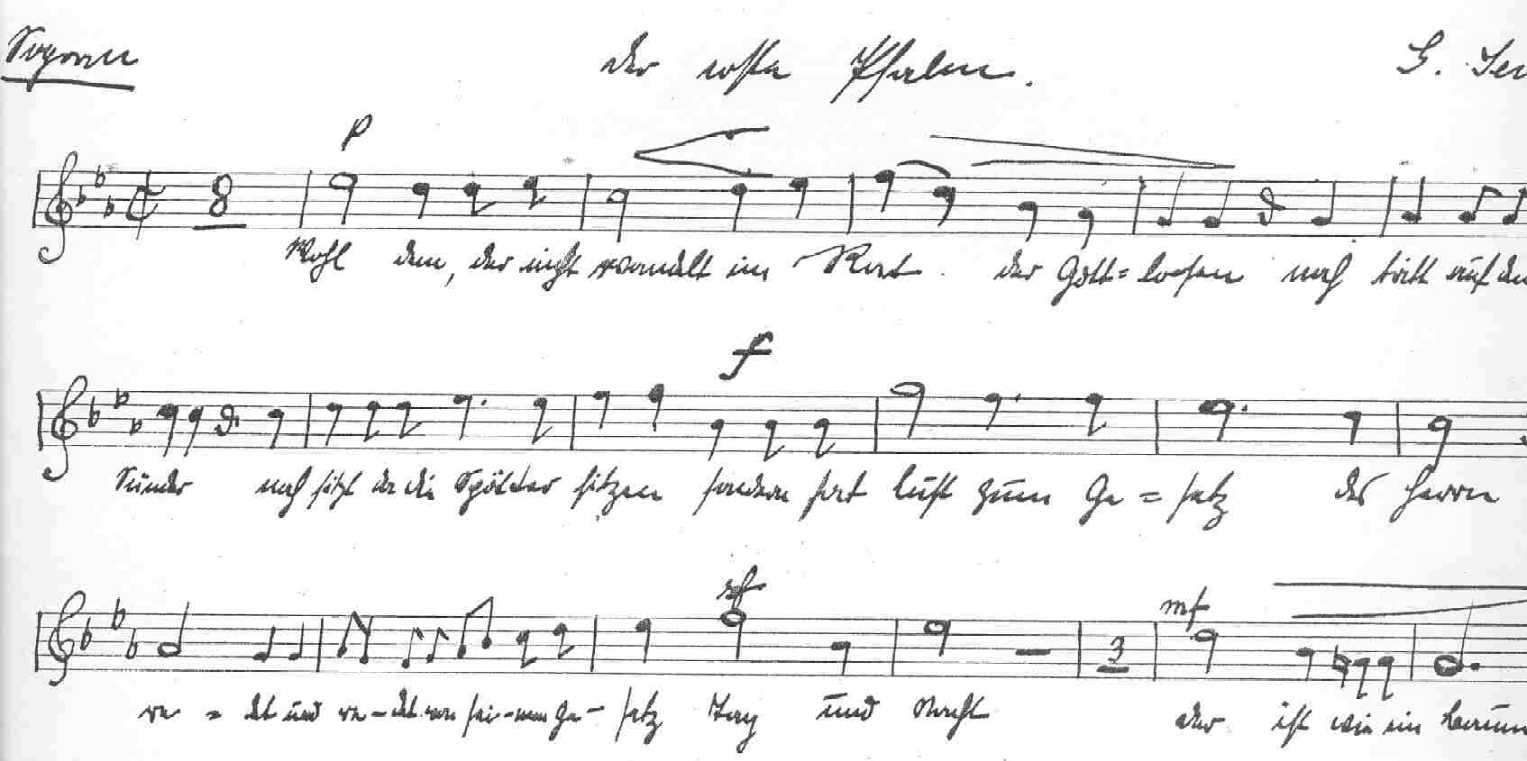 Sopran der erste Psalm. G.
p
8
Wohl dem, der nicht wandelt im Rat der Gott=losen noch tritt auf den
f
Sünder noch sitzt da die Spötter sitzen sondern hat Lust zum Ge=setz des Herrn
sf mf
re=det und re-det von sei-nem Ge-setz Tag und Nacht der ist wie ein Baum
3